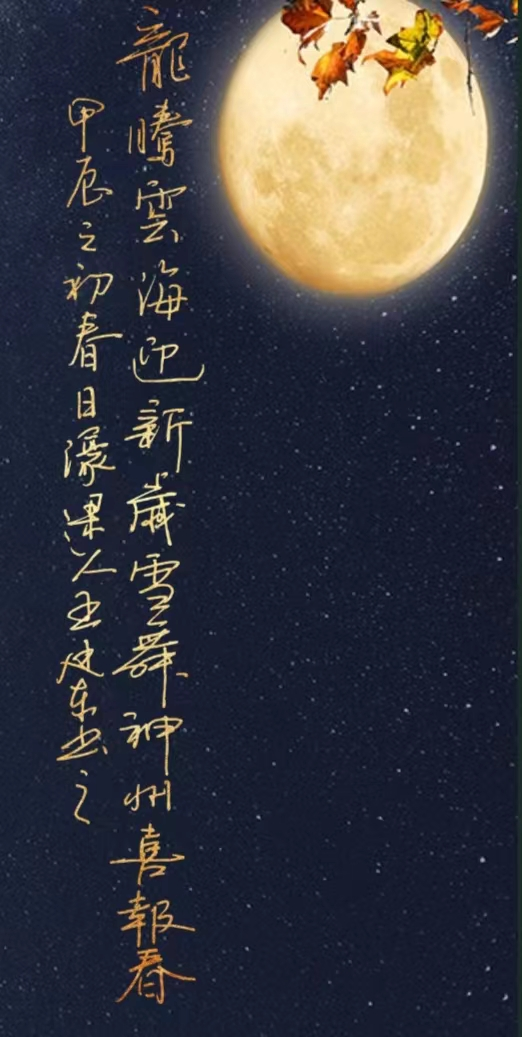 龍騰雲海迎新歲雪舞神州喜報春
甲辰之初春日濠梁人王建东书之